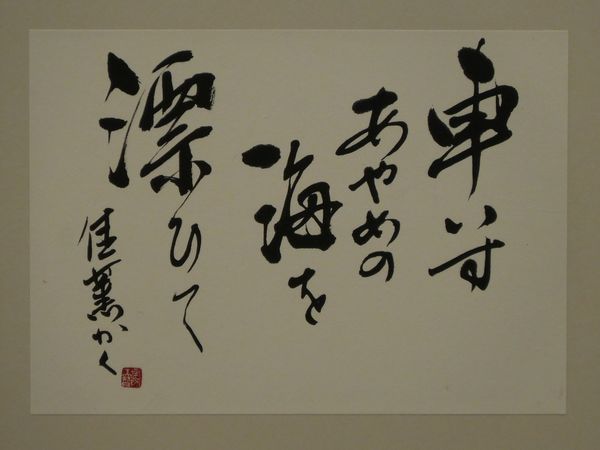 車いす
あやめの
海を
漂ひて
佳薫かく